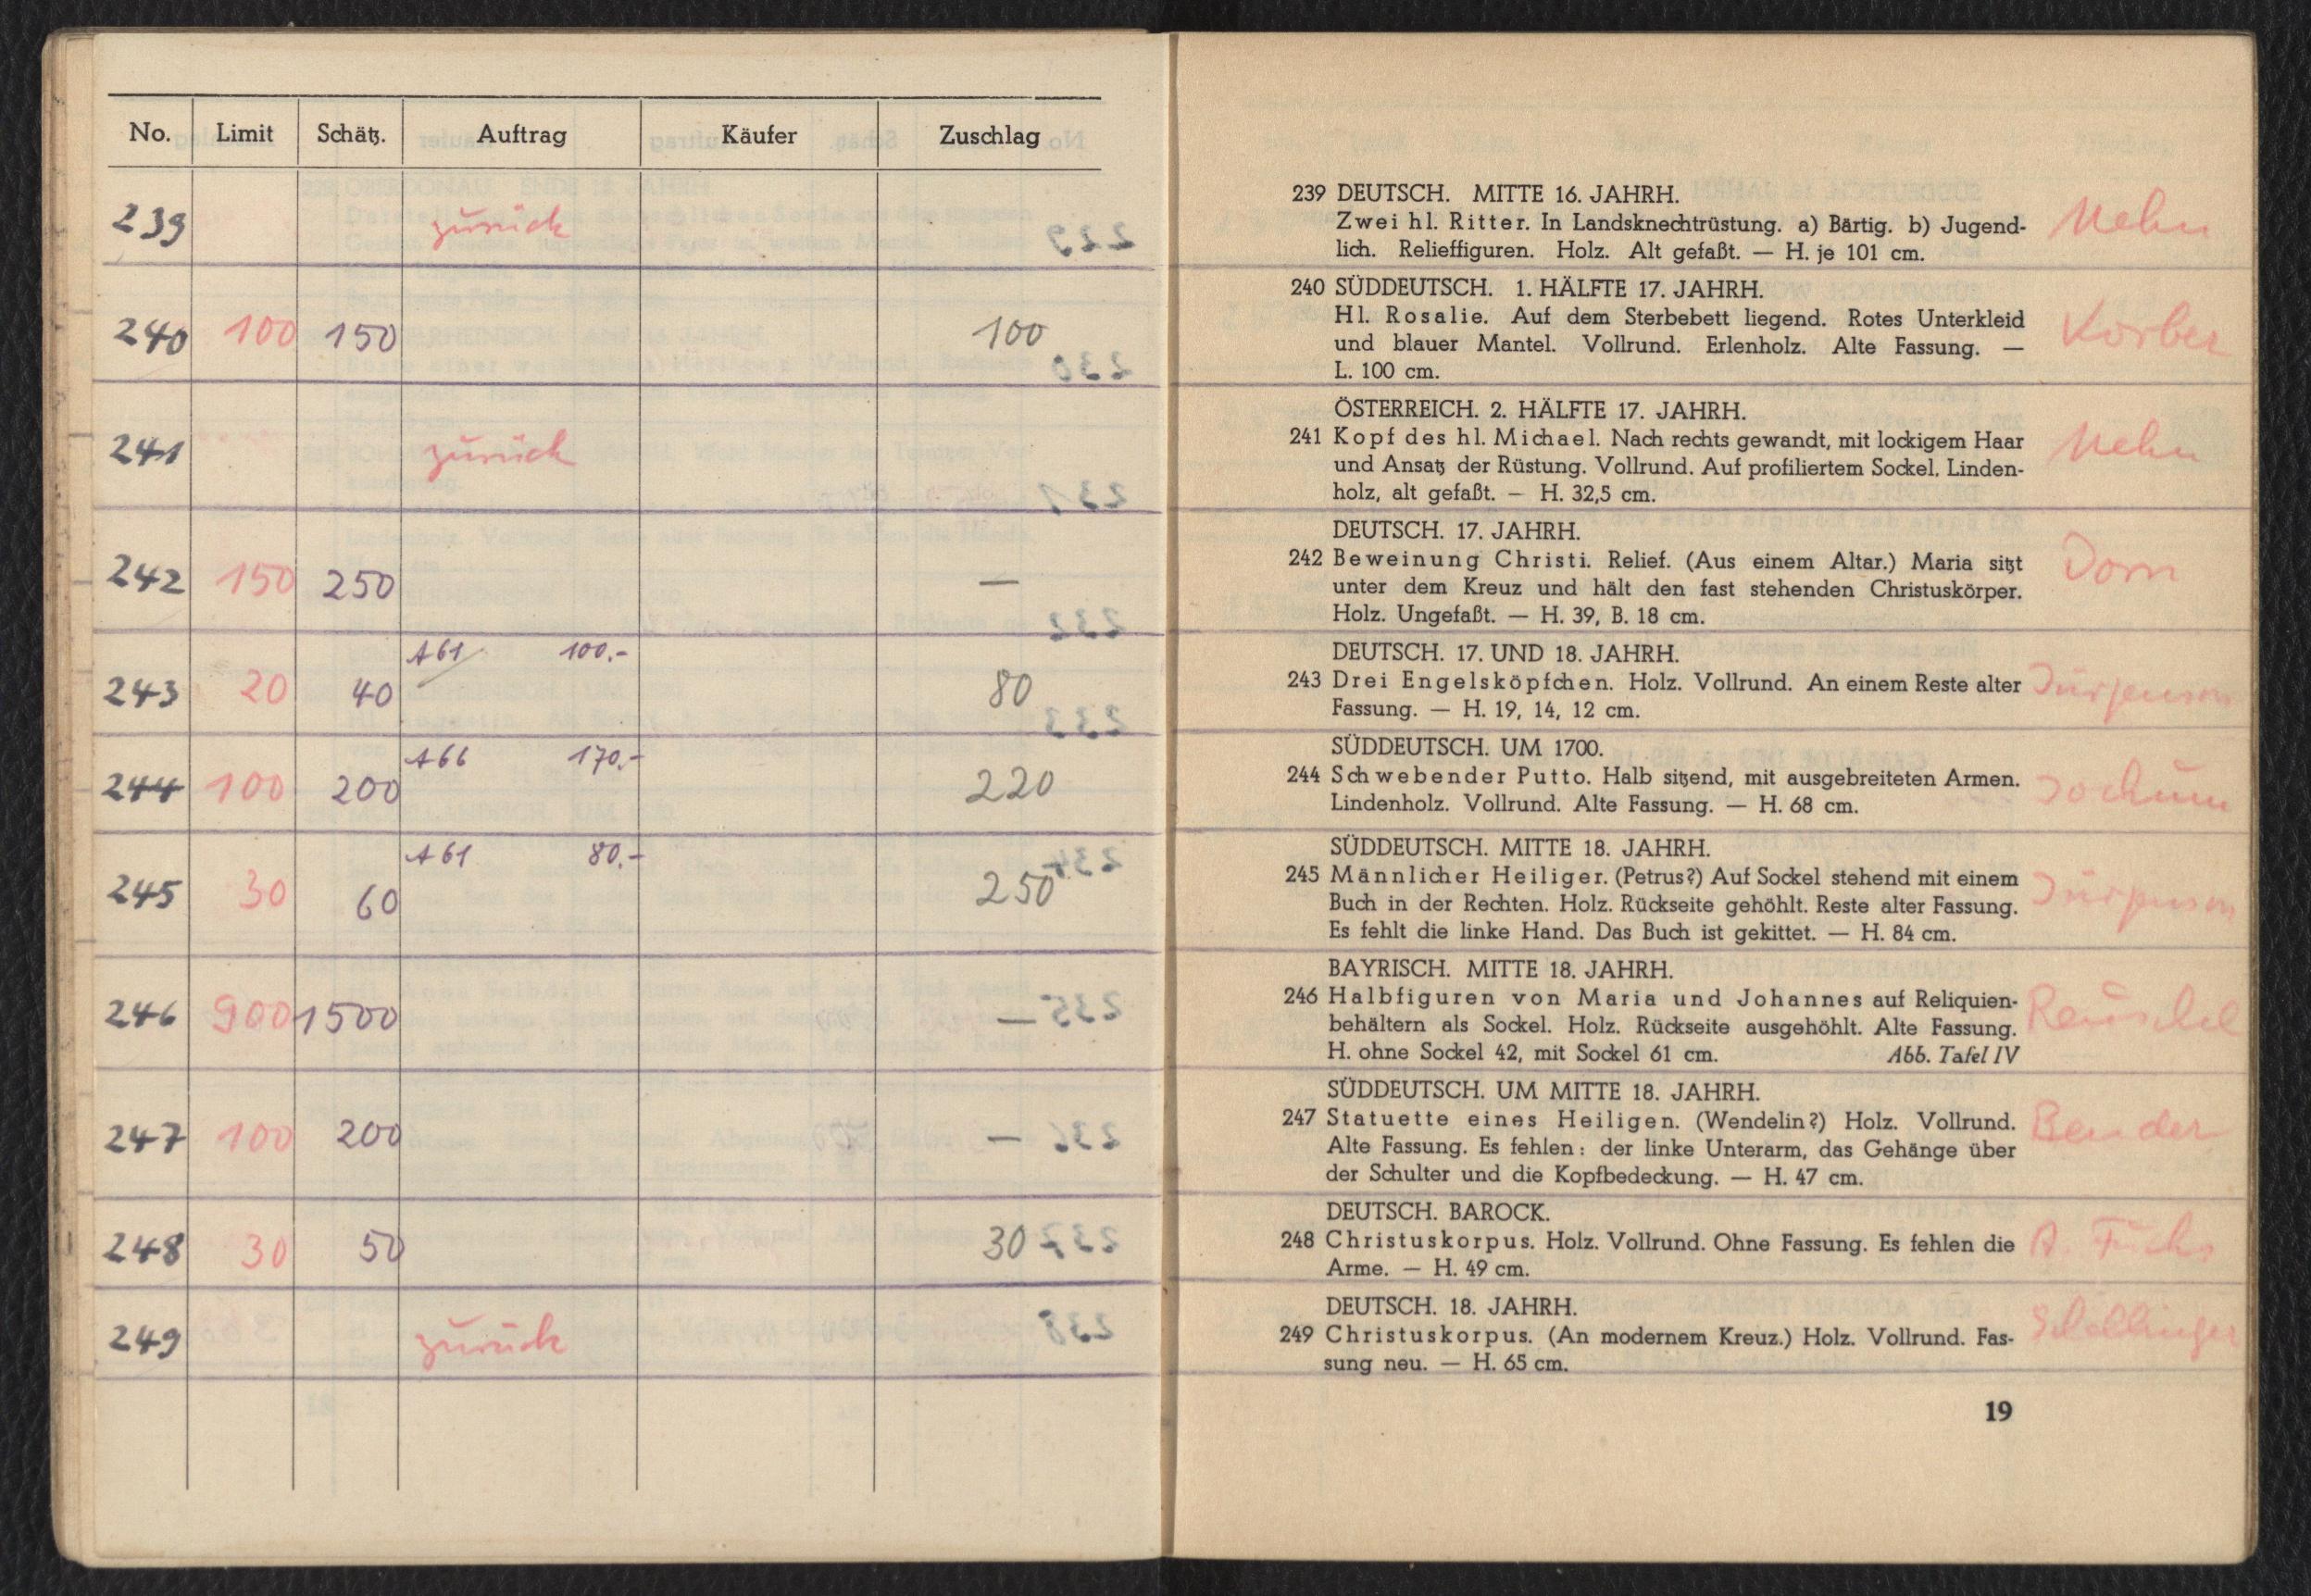 No. Limit Schätz. Auftrag Käufer Zuschlag
239 zurück
240 100 150 100
241 zurück
242 150 250 —
A 61 100.-
243 20 40 80
A 66 170.-
244 100 200 220
A 61 80.-
245 30 60 250
246 900 1500 —
247 100 200 —
248 30 50 30
249 zurück
239 DEUTSCH. MITTE 16. JAHRH.
Zwei hl. Ritter. In Landsknechtrüstung. a) Bärtig. b) Jugend-
lich. Relieffiguren. Holz. Alt gefaßt. — H. je 101 cm.
240 SÜDDEUTSCH. 1. HÄLFTE 17. JAHRH.
Hl. Rosalie. Auf dem Sterbebett liegend. Rotes Unterkleid Körber
und blauer Mantel. Vollrund. Erlenholz. Alte Fassung. —
L. 100 cm.
ÖSTERREICH. 2. HÄLFTE 17. JAHRH.
241 Kopf des hl. Michael. Nach rechts gewandt, mit lockigem Haar
und Ansatz der Rüstung. Vollrund. Auf profiliertem Sockel. Linden-
holz, alt gefaßt. — H. 32,5 cm.
DEUTSCH. 17. JAHRH.
242 Beweinung Christi. Relief. (Aus einem Altar.) Maria sitzt Dorn
unter dem Kreuz und hält den fast stehenden Christuskörper.
Holz. Ungefaßt. — H. 39, B. 18 cm.
DEUTSCH. 17. UND 18. JAHRH.
243 Drei Engelsköpfchen. Holz. Vollrund. An einem Reste alter
Fassung. — H. 19, 14, 12 cm.
SÜDDEUTSCH. UM 1700.
244 Schwebender Putto. Halb sitzend, mit ausgebreiteten Armen. Jochum
Lindenholz. Vollrund. Alte Fassung. — H. 68 cm.
SÜDDEUTSCH. MITTE 18. JAHRH.
245 Männlicher Heiliger. (Petrus?) Auf Sockel stehend mit einem
Buch in der Rechten. Holz. Rückseite gehöhlt. Reste alter Fassung.
Es fehlt die linke Hand. Das Buch ist gekittet. — H. 84 cm.
BAYRISCH. MITTE 18. JAHRH.
246 Halbfiguren von Maria und Johannes auf Reliquien- Reuschel
behältern als Sockel. Holz. Rückseite ausgehöhlt. Alte Fassung.
H. ohne Sockel 42, mit Sockel 61 cm. Abb. Tafel IV
SÜDDEUTSCH. UM MITTE 18. JAHRH.
247 Statuette eines Heiligen. (Wendelin?) Holz. Vollrund. Bender
Alte Fassung. Es fehlen: der linke Unterarm, das Gehänge über
der Schulter und die Kopfbedeckung. — H. 47 cm.
DEUTSCH. BAROCK.
248 Christuskorpus. Holz. Vollrund. Ohne Fassung. Es fehlen die A. Fuchs
Arme. — H. 49 cm.
DEUTSCH. 18. JAHRH.
249 Christuskorpus. (An modernem Kreuz.) Holz. Vollrund. Fas-
sung neu. — H. 65 cm.
19